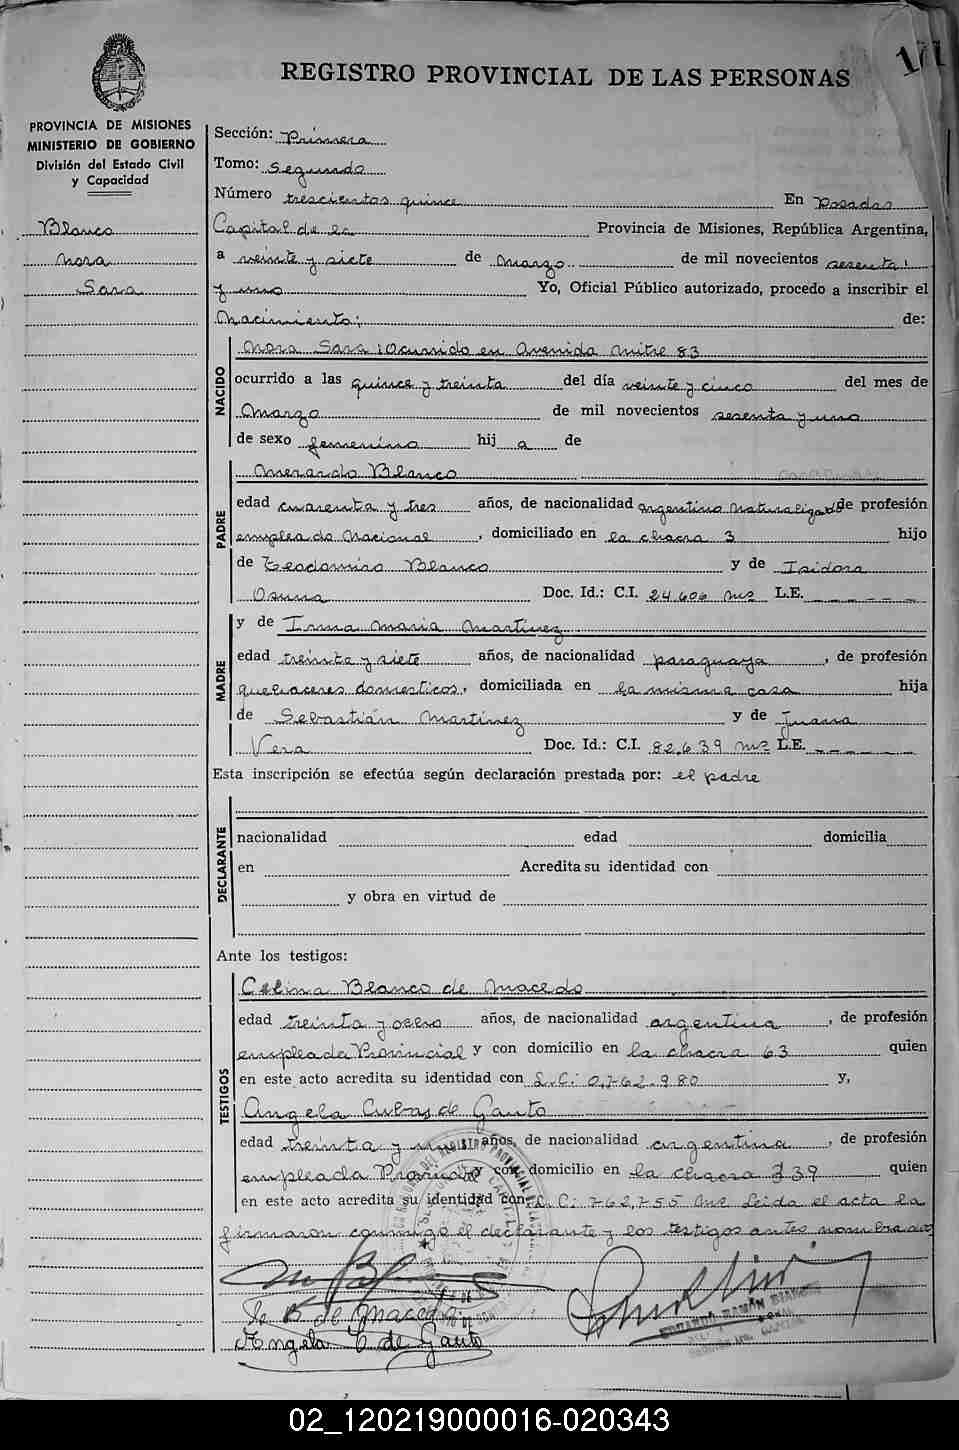 REGISTRO PROVINCIAL DE LAS PERSONAS
PROVINCIA DE MISIONES
MINISTERIO DE GOBIERNO
División del Estado Civil
y Capacidad
Blanco
Nora
Sara
Sección: Primera
Tomo: Segundo
Número trescientos quince En Posadas
Capital de la Provincia de Misiones, República Argentina,
a veinte y siete de Marzo de mil novecientos sesenta
y uno Yo, Oficial Público autorizado, procedo a inscribir el
Nacimiento: de:
NACIDO
Nora Sara: Ocurrido en Avenida Mitre 83
ocurrido a las quince y treinta del día veinte y cinco del mes de
Marzo de mil novecientos sesenta y uno
de sexo femenino hij a de
PADRE
Blanco
edad cuarenta y tres años, de nacionalidad argentino naturalizado de profesión
empleado Nacional , domiciliado en la chacra 3 hijo
de Teodomiro Blanco y de Isidora
Osuna Doc. Id.: C.I. 24.606 Mns L.E. - - - - -
MADRE
y de Irma Maria Martinez
edad treinta y siete años, de nacionalidad paraguaya , de profesión
quehaceres domesticos, domiciliada en la misma casa hija
de Sebastián Martinez y de Juana
Vera Doc. Id.: C.I. 82.639 Mns L.E. - - - - -
Esta inscripción se efectúa según declaración prestada por: el padre
DECLARANTE
nacionalidad edad domicilia
en Acredita su identidad con
y obra en virtud de
Ante los testigos:
TESTIGOS
Celina Blanco de Macedo
edad treinta y ocho años, de nacionalidad argentina , de profesión
empleada Provincial y con domicilio en la chacra 63 quien
en este acto acredita su identidad con L.C: 0.762.980 y,
Angela Cubas de Gauto
edad treinta y años, de nacionalidad argentina , de profesión
empleada Provincial y con domicilio en la chacra 139 quien
en este acto acredita su identidad con L.C: 762.755 Mns Leida el acta la
firmaron conmigo el declarante y los testigos antes nombrados
B de Macedo
Angela C de Gauto
EDUARDO RAMÓN
02_120219000016-020343